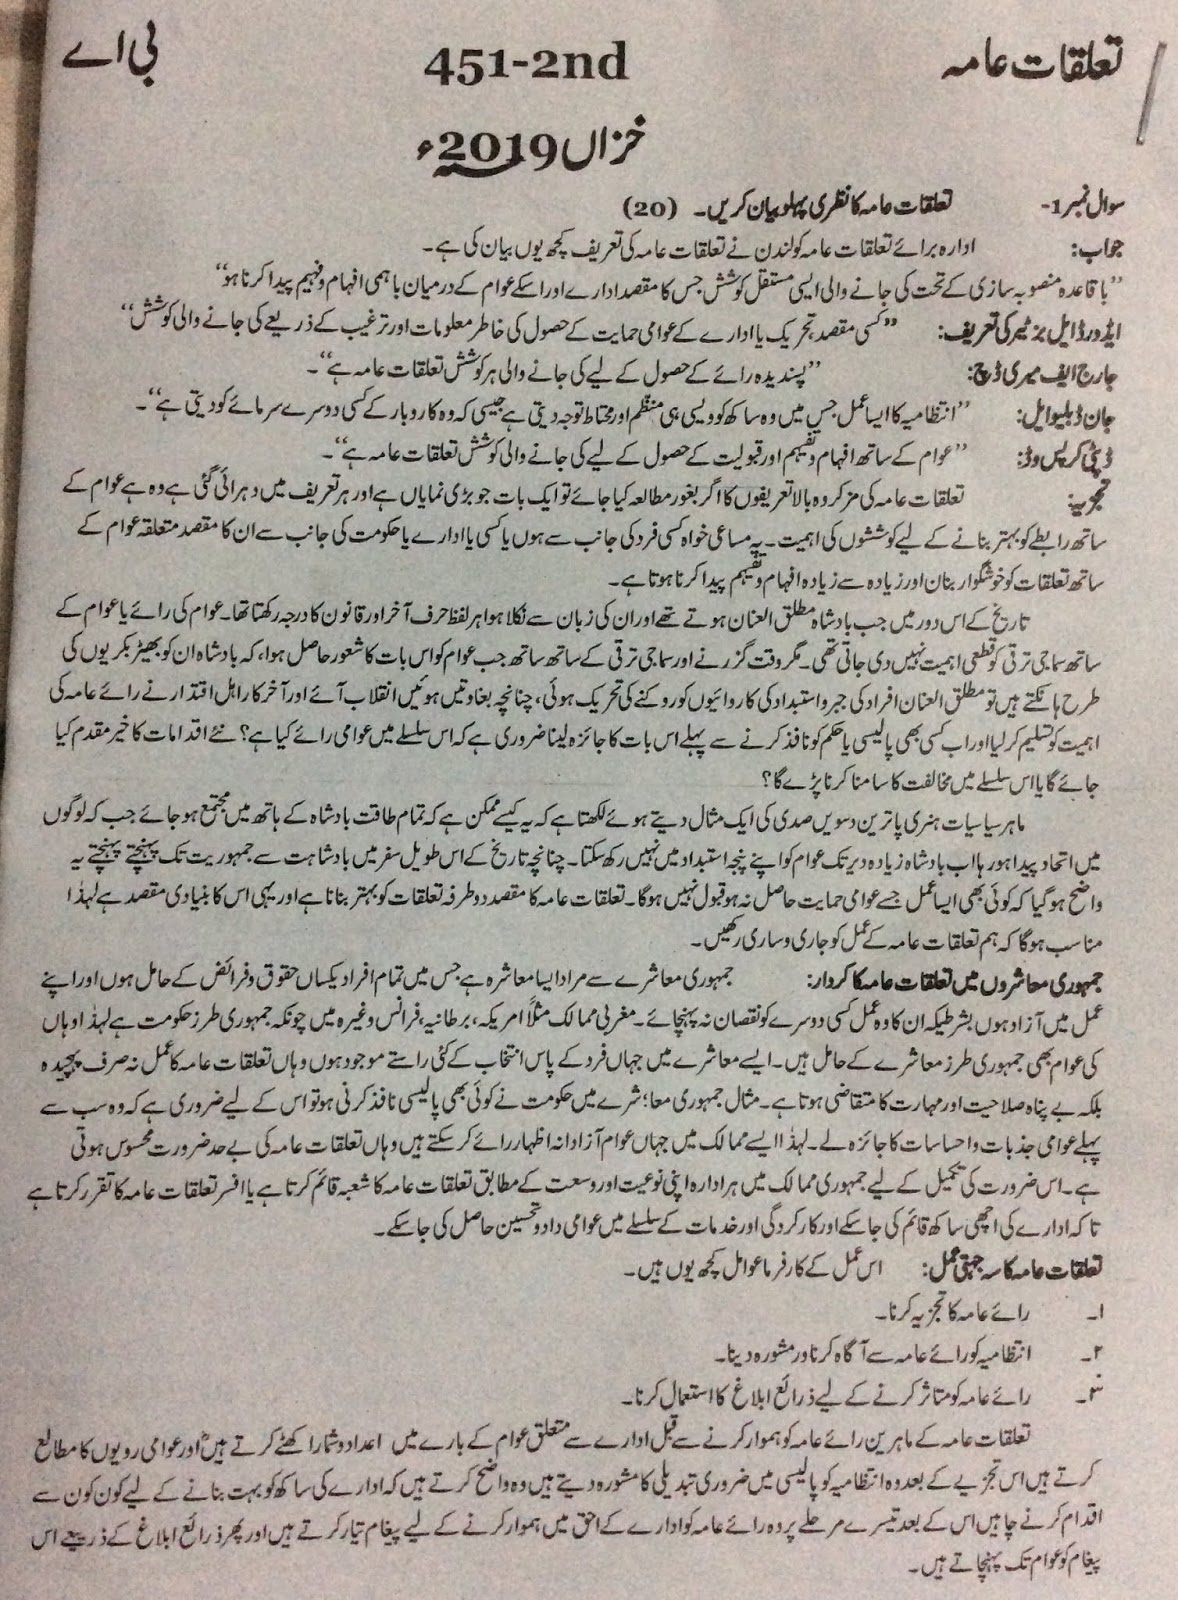 تعلقات عامہ 451-2nd بی اے
خزاں 2019ء
سوال نمبر 1- تعلقات عامہ کا نظری پہلو بیان کریں۔ (20)
جواب: ادارہ برائے تعلقات عامہ کولندن نے تعلقات عامہ کی تعریف کچھ یوں بیان کی ہے۔
’’باقاعدہ منصوبہ سازی کے تحت کی جانے والی ایسی مستقل کوشش جس کا مقصد ادارے اور اسکے عوام کے درمیان باہمی افہام و فہیم پیدا کرنا ہو‘‘
ایڈورڈ ایل برنیز کی تعریف: ’’کسی مقصد، تحریک یا ادارے کے عوامی حمایت کے حصول کی خاطر معلومات اور ترغیب کے ذریعے کی جانے والی کوشش‘‘
جارج ایف میری ڈچ: ’’پسندیدہ رائے کے حصول کے لیے کی جانے والی ہر کوشش تعلقات عامہ ہے‘‘۔
جان ڈبلیو ایل: ’’انتظامیہ کا ایسا عمل جس میں وہ ساکھ کو ویسی ہی منظم اور محتاط توجہ دیتی ہے جیسی کہ وہ کاروبار کے کسی دوسرے سرمائے کو دیتی ہے‘‘۔
ڈپٹی کرپس وڈ: ’’عوام کے ساتھ افہام و تفہیم اور قبولیت کے حصول کے لیے کی جانے والی کوشش تعلقات عامہ ہے‘‘۔
تجزیہ: تعلقات عامہ کی مزکروہ بالا تعریفوں کا اگر بغور مطالعہ کیا جائے تو ایک بات جو بڑی نمایاں ہے اور ہر تعریف میں دہرائی گئی ہے وہ ہے عوام کے
ساتھ رابطے کو بہتر بنانے کے لیے کوششوں کی اہمیت۔ یہ مساعی خواہ کسی فرد کی جانب سے ہوں یا کسی یا ادارے یا حکومت کی جانب سے ان کا مقصد متعلقہ عوام کے
ساتھ تعلقات کو خوشگوار بنان اور زیادہ سے زیادہ افہام و تفہیم پیدا کرنا ہوتا ہے۔
تاریخ کے اس دور میں جب بادشاہ مطلق العنان ہوتے تھے اور ان کی زبان سے نکلا ہوا ہر لفظ حرف آخر اور قانون کا درجہ رکھتا تھا۔ عوام کی رائے یا عوام کے
ساتھ سماجی ترقی کو قطعی اہمیت نہیں دی جاتی تھی۔ مگر وقت گزرنے اور سماجی ترقی کے ساتھ ساتھ جب عوام کو اس بات کا شعور حاصل ہوا، کہ بادشاہ ان کو بھیڑ بکریوں کی
طرح ہانکتے ہیں تو مطلق العنان افراد کی جبر و استبداد کی کاروائیوں کو روکنے کی تحریک ہوئی، چنانچہ بغاوتیں ہوئیں انقلاب آئے اور آخر کار اہل اقتدار نے رائے عامہ کی
اہمیت کو تسلیم کر لیا اور اب کسی بھی پالیسی یا حکم کو نافذ کرنے سے پہلے اس بات کا جائزہ لینا ضروری ہے کہ اس سلسلے میں عوامی رائے کیا ہے؟ نئے اقدامات کا خیر مقدم کیا
جائے گا یا اس سلسلے میں مخالفت کا سامنا کرنا پڑے گا؟
ماہر سیاسیات ہنری پاترین دسویں صدی کی ایک مثال دیتے ہوئے لکھتا ہے کہ یہ کیسے ممکن ہے کہ تمام طاقت بادشاہ کے ہاتھ میں مجتمع ہو جائے جب کہ لوگوں
میں اتحاد پیدا ہو رہا اب بادشاہ زیادہ دیر تک عوام کو اپنے پنجہ استبداد میں نہیں رکھ سکتا۔ چنانچہ تاریخ کے اس طویل سفر میں بادشاہت سے جمہوریت تک پہنچتے پہنچتے یہ
واضح ہو گیا کہ کوئی بھی ایسا عمل جسے عوامی حمایت حاصل نہ ہو قبول نہیں ہوگا۔ تعلقات عامہ کا مقصد دو طرفہ تعلقات کو بہتر بنانا ہے اور یہی اس کا بنیادی مقصد ہے لہٰذا
مناسب ہوگا کہ ہم تعلقات عامہ کے عمل کو جاری و ساری رکھیں۔
جمہوری معاشروں میں تعلقات عامہ کا کردار: جمہوری معاشرے سے مراد ایسا معاشرہ ہے جس میں تمام افراد یکساں حقوق و فرائض کے حامل ہوں اور اپنے
عمل میں آزاد ہوں بشرطیکہ ان کا وہ عمل کسی دوسرے کو نقصان نہ پہنچائے۔ مغربی ممالک مثلاً امریکہ، برطانیہ، فرانس وغیرہ میں چونکہ جمہوری طرز حکومت ہے لہذا وہاں
کی عوام بھی جمہوری طرز معاشرے کے حامل ہیں۔ ایسے معاشرے میں جہاں فرد کے پاس انتخاب کے کئی راستے موجود ہوں وہاں تعلقات عامہ کا عمل نہ صرف پیچیدہ
بلکہ بے پناہ صلاحیت اور مہارت کا متقاضی ہوتا ہے۔ مثال جمہوری معا؛شرے میں حکومت نے کوئی بھی پالیسی نافذ کرنی ہو تو اس کے لیے ضروری ہے کہ وہ سب سے
پہلے عوامی جذبات و احساسات کا جائزہ لے۔ لہذا ایسے ممالک میں جہاں عوام آزادانہ اظہار رائے کر سکتے ہیں وہاں تعلقات عامہ کی بے حد ضرورت محسوس ہوتی
ہے۔ اس ضرورت کی تکمیل کے لیے جمہوری ممالک میں ہر ادارہ اپنی نوعیت اور وسعت کے مطابق تعلقات عامہ کا شعبہ قائم کرتا ہے یا افسر تعلقات عامہ کا تقرر کرتا ہے
تاکہ ادارے کی اچھی ساکھ قائم کی جا سکے اور کارکردگی اور خدمات کے سلسلے میں عوامی داد و تحسین حاصل کی جا سکے۔
تعلقات عامہ کا سہ جہتی عمل: اس عمل کے کارفرما عوامل کچھ یوں ہیں۔
۱۔ رائے عامہ کا تجزیہ کرنا۔
۲۔ انتظامیہ کو رائے عامہ سے آگاہ کرنا ور مشورہ دینا۔
۳۔ رائے عامہ کو متاثر کرنے کے لیے ذرائع ابلاغ کا استعمال کرنا۔
تعلقات عامہ کے ماہرین رائے عامہ کو ہموار کرنے سے قبل ادارے سے متعلق عوام کے بارے میں اعداد و شمار اکھٹے کرتے ہیں اور عوامی رویوں کا مطالع
کرتے ہیں اس تجزیے کے بعد وہ انتظامیہ کو پالیسی میں ضروری تبدیلی کا مشورہ دیتے ہیں وہ واضح کرتے ہیں کہ ادارے کی ساکھ کو بہت بنانے کے لیے کون کون سے
اقدام کرنے چاہیں اس کے بعد تیسرے مرحلے پر وہ رائے عامہ کو ادارے کے احق میں ہموار کرنے کے لیے پیغام تیار کرتے ہیں اور پھر ذرائع ابلاغ کے ذریعے اس
پیغام کو عوام تک پہنچاتے ہیں۔